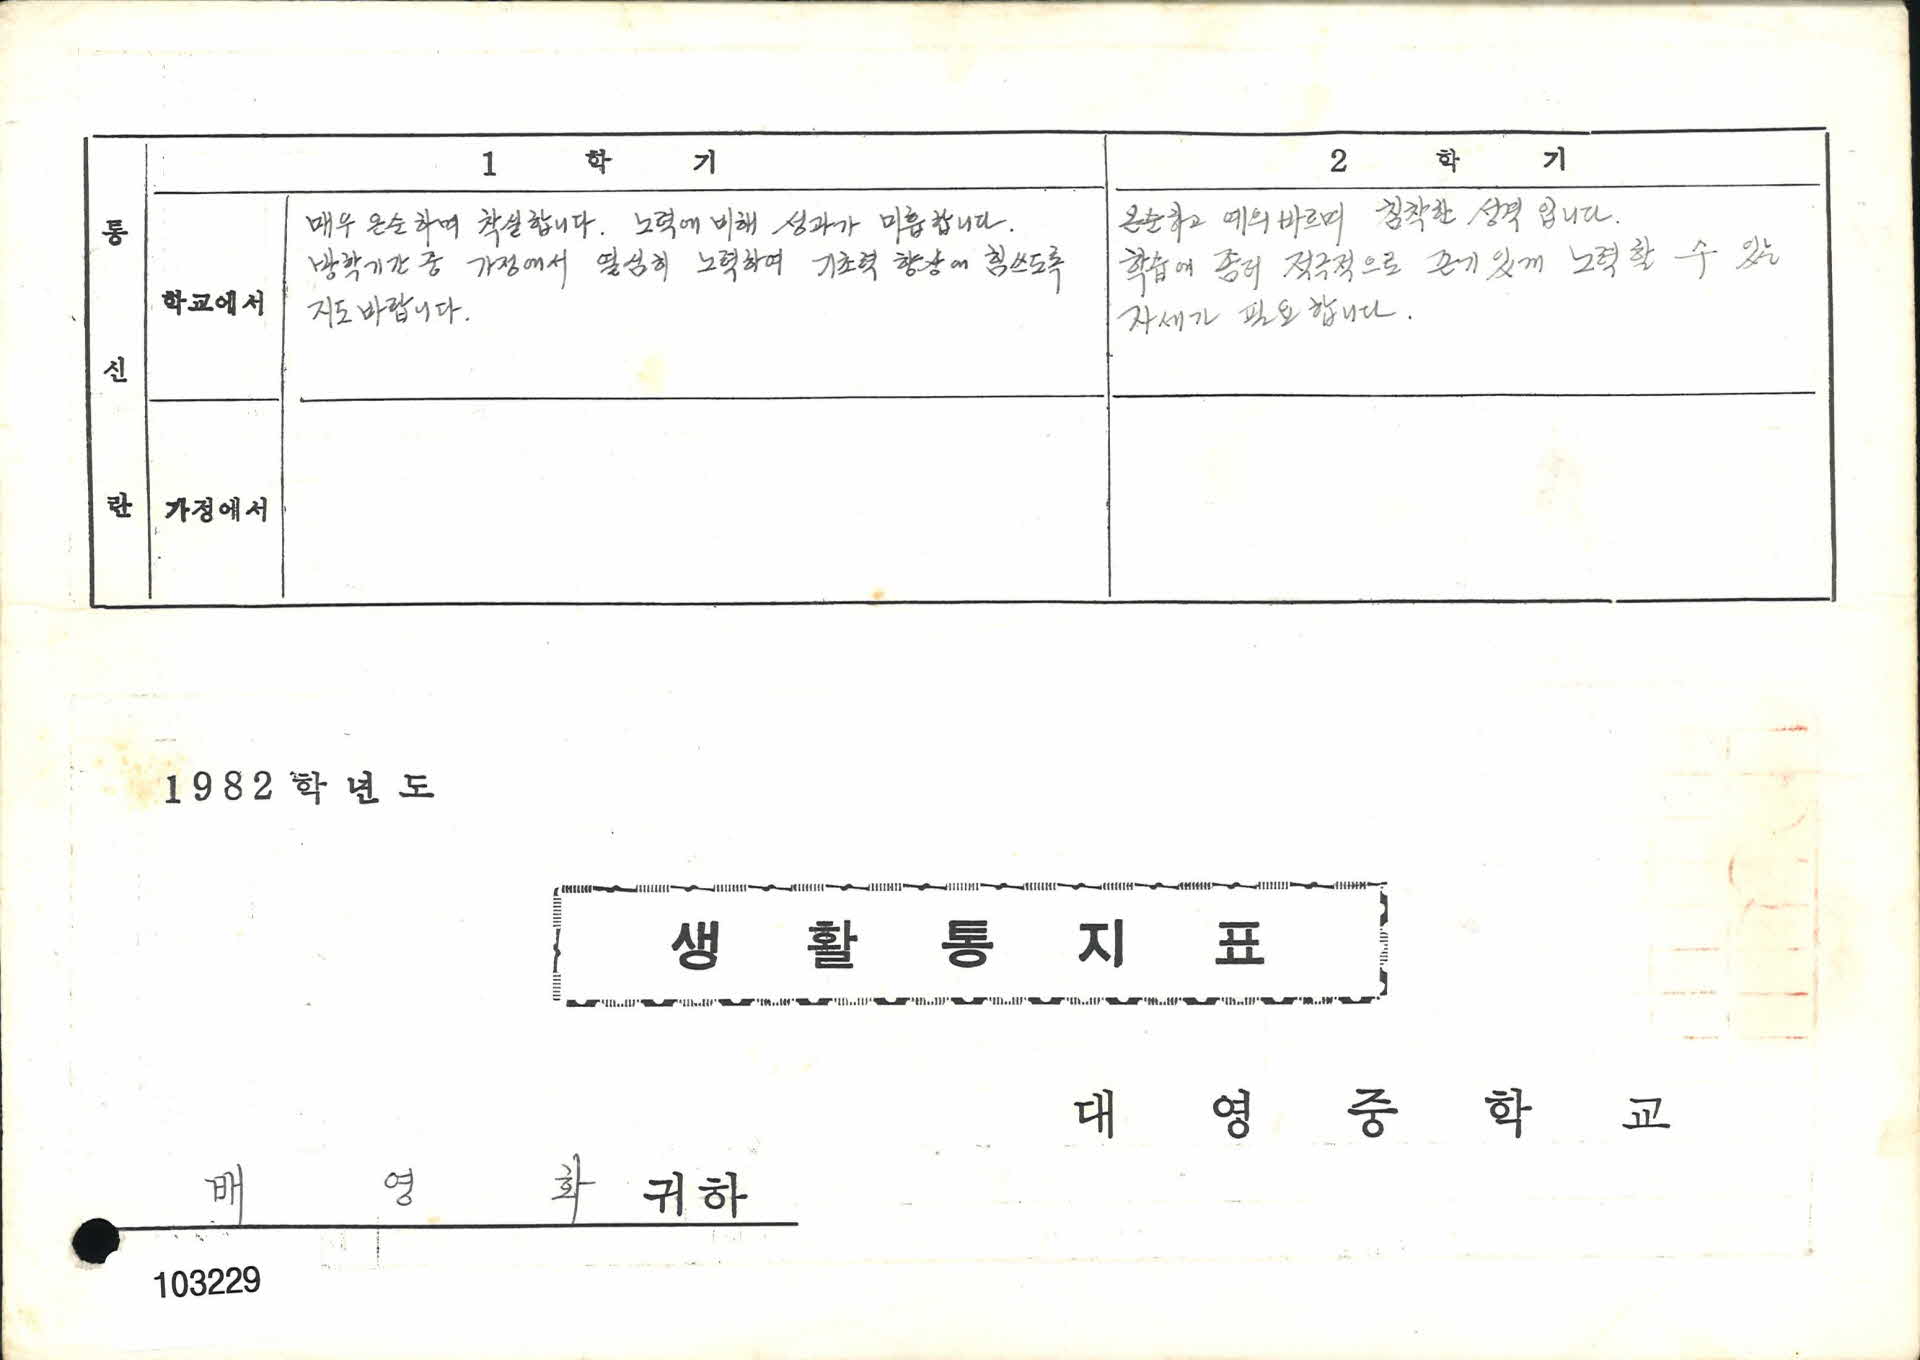 통신란
1 학 기
2 학 기
학교에서
매우 온순하며 착실합니다. 노력에 비해 성과가 미흡합니다.
방학기간 중 가정에서 열심히 노력하여 기초력 향상에 힘쓰도록
지도 바랍니다.
온순하고 예의바르며 침착한 성격입니다.
학습에 좀더 적극적으로 끈기 있게 노력할 수 있는
자세가 필요합니다.
가정에서
1982 학년도
생 활 통 지 표
대 영 중 학 교
배 영 화 귀하
103229